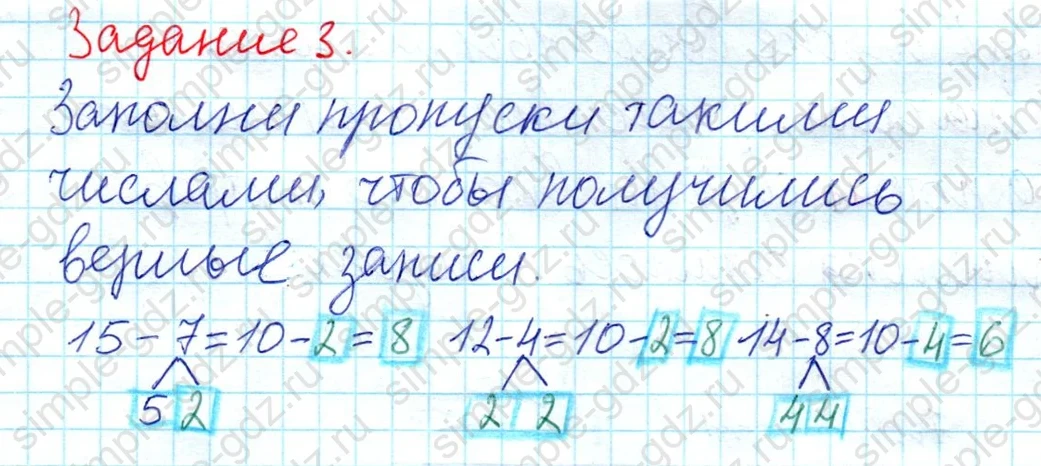 Задание 3.
Заполни пропуски такими
числами, чтобы получились
верные записи.
15-7=10-2=8 12-4=10-2=8 14-8=10-4=6
5 2 2 2 4 4
simple-gdz.ru